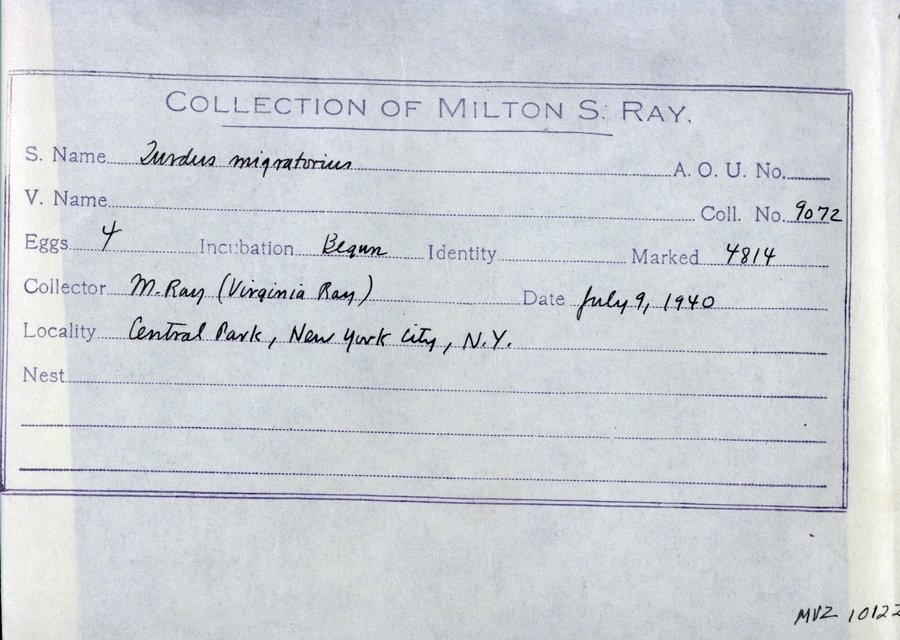 COLLECTION OF MILTON S. RAY.
S. Name Turdus migratorius A. O. U. No.
V. Name Coll. No. 9072
Eggs 4 Incubation Begun Identity Marked 4814
Collector M. Ray (Virginia Ray) Date July 9, 1940
Locality Central Park, New York City, N.Y.
Nest
MVZ